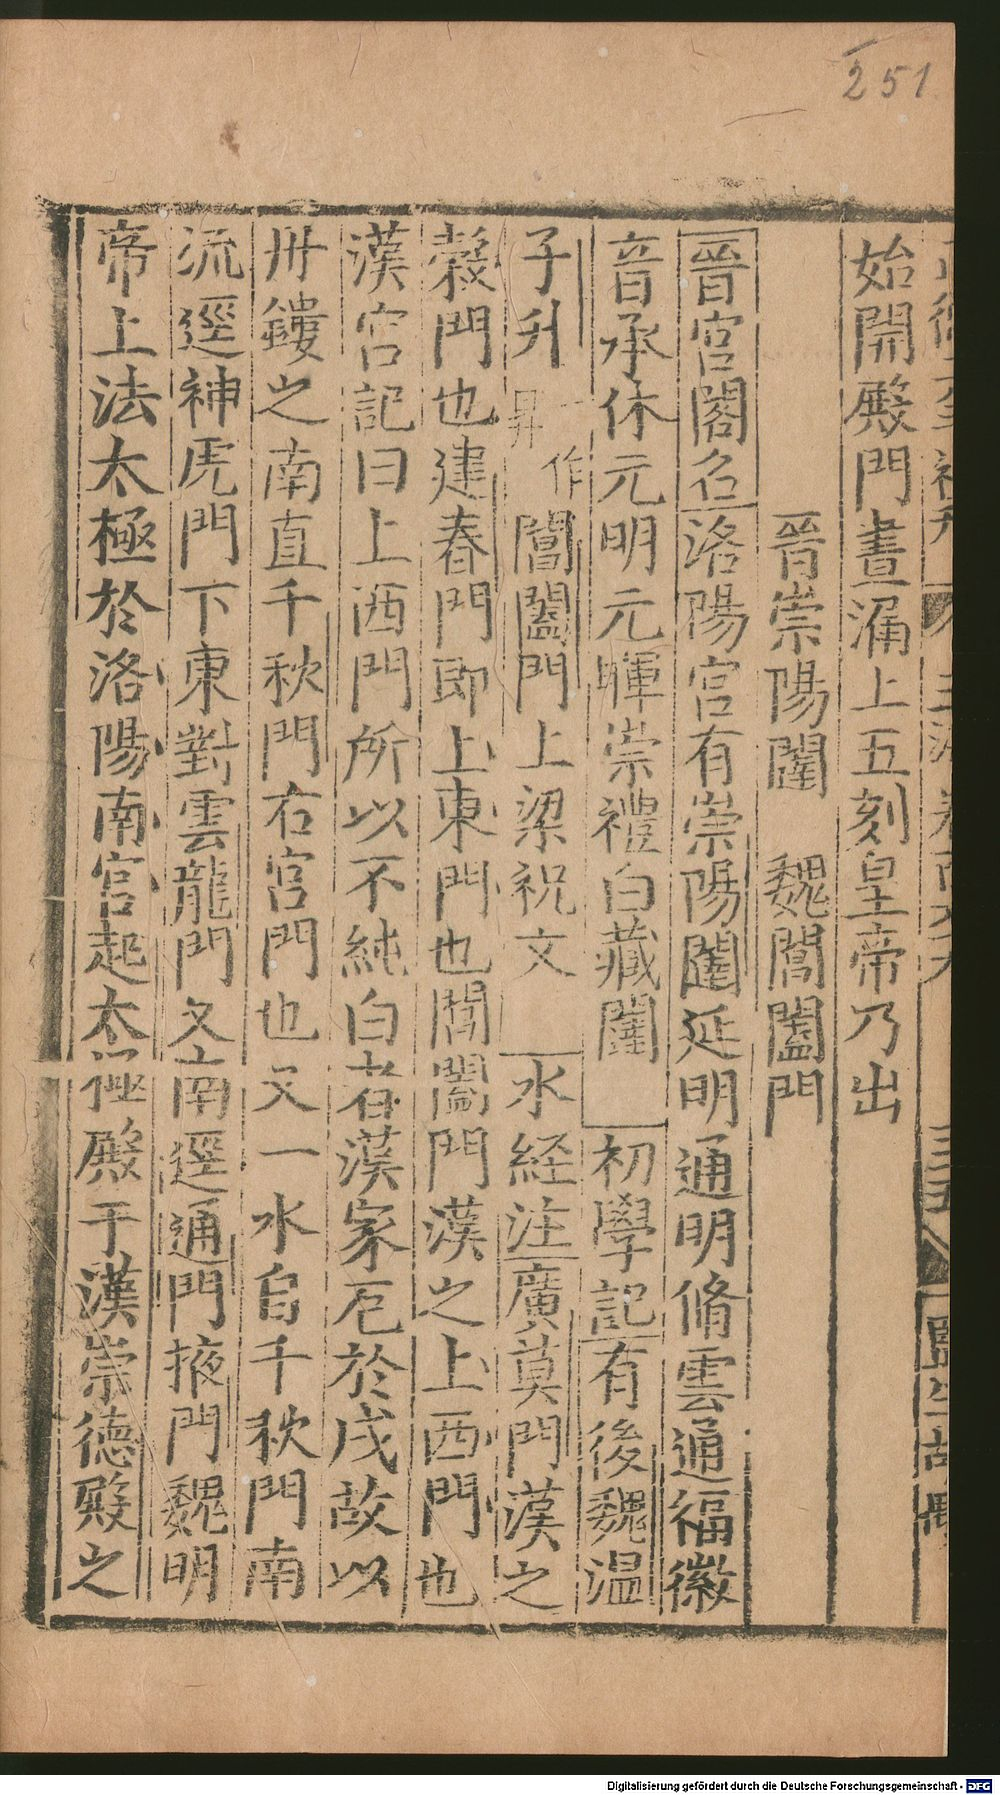 251
始開殿門晝漏上五刻皇帝乃出
晉崇陽闥 魏閶闔門
晉宮閣名洛陽宮有崇陽闥延明通明脩雲通福徽
音承休元明元暉崇禮白藏闥 初學記有後魏温
子升一作昇閶闔門上梁祝文 水経注廣莫門漢之
榖門也建春門即上東門也閶闔門漢之上西門也
漢宮記曰上西門所以不純白者漢家厄於戌故以
丹鏤之南直千秋門右宮門也又一水自千秋門南
流逕神虎門下東對雲龍門又南逕通門掖門魏明
帝上法太極於洛陽南宮起太極殿于漢崇德殿之
Digitalisierung gefördert durch die Deutsche Forschungsgemeinschaft - DFG